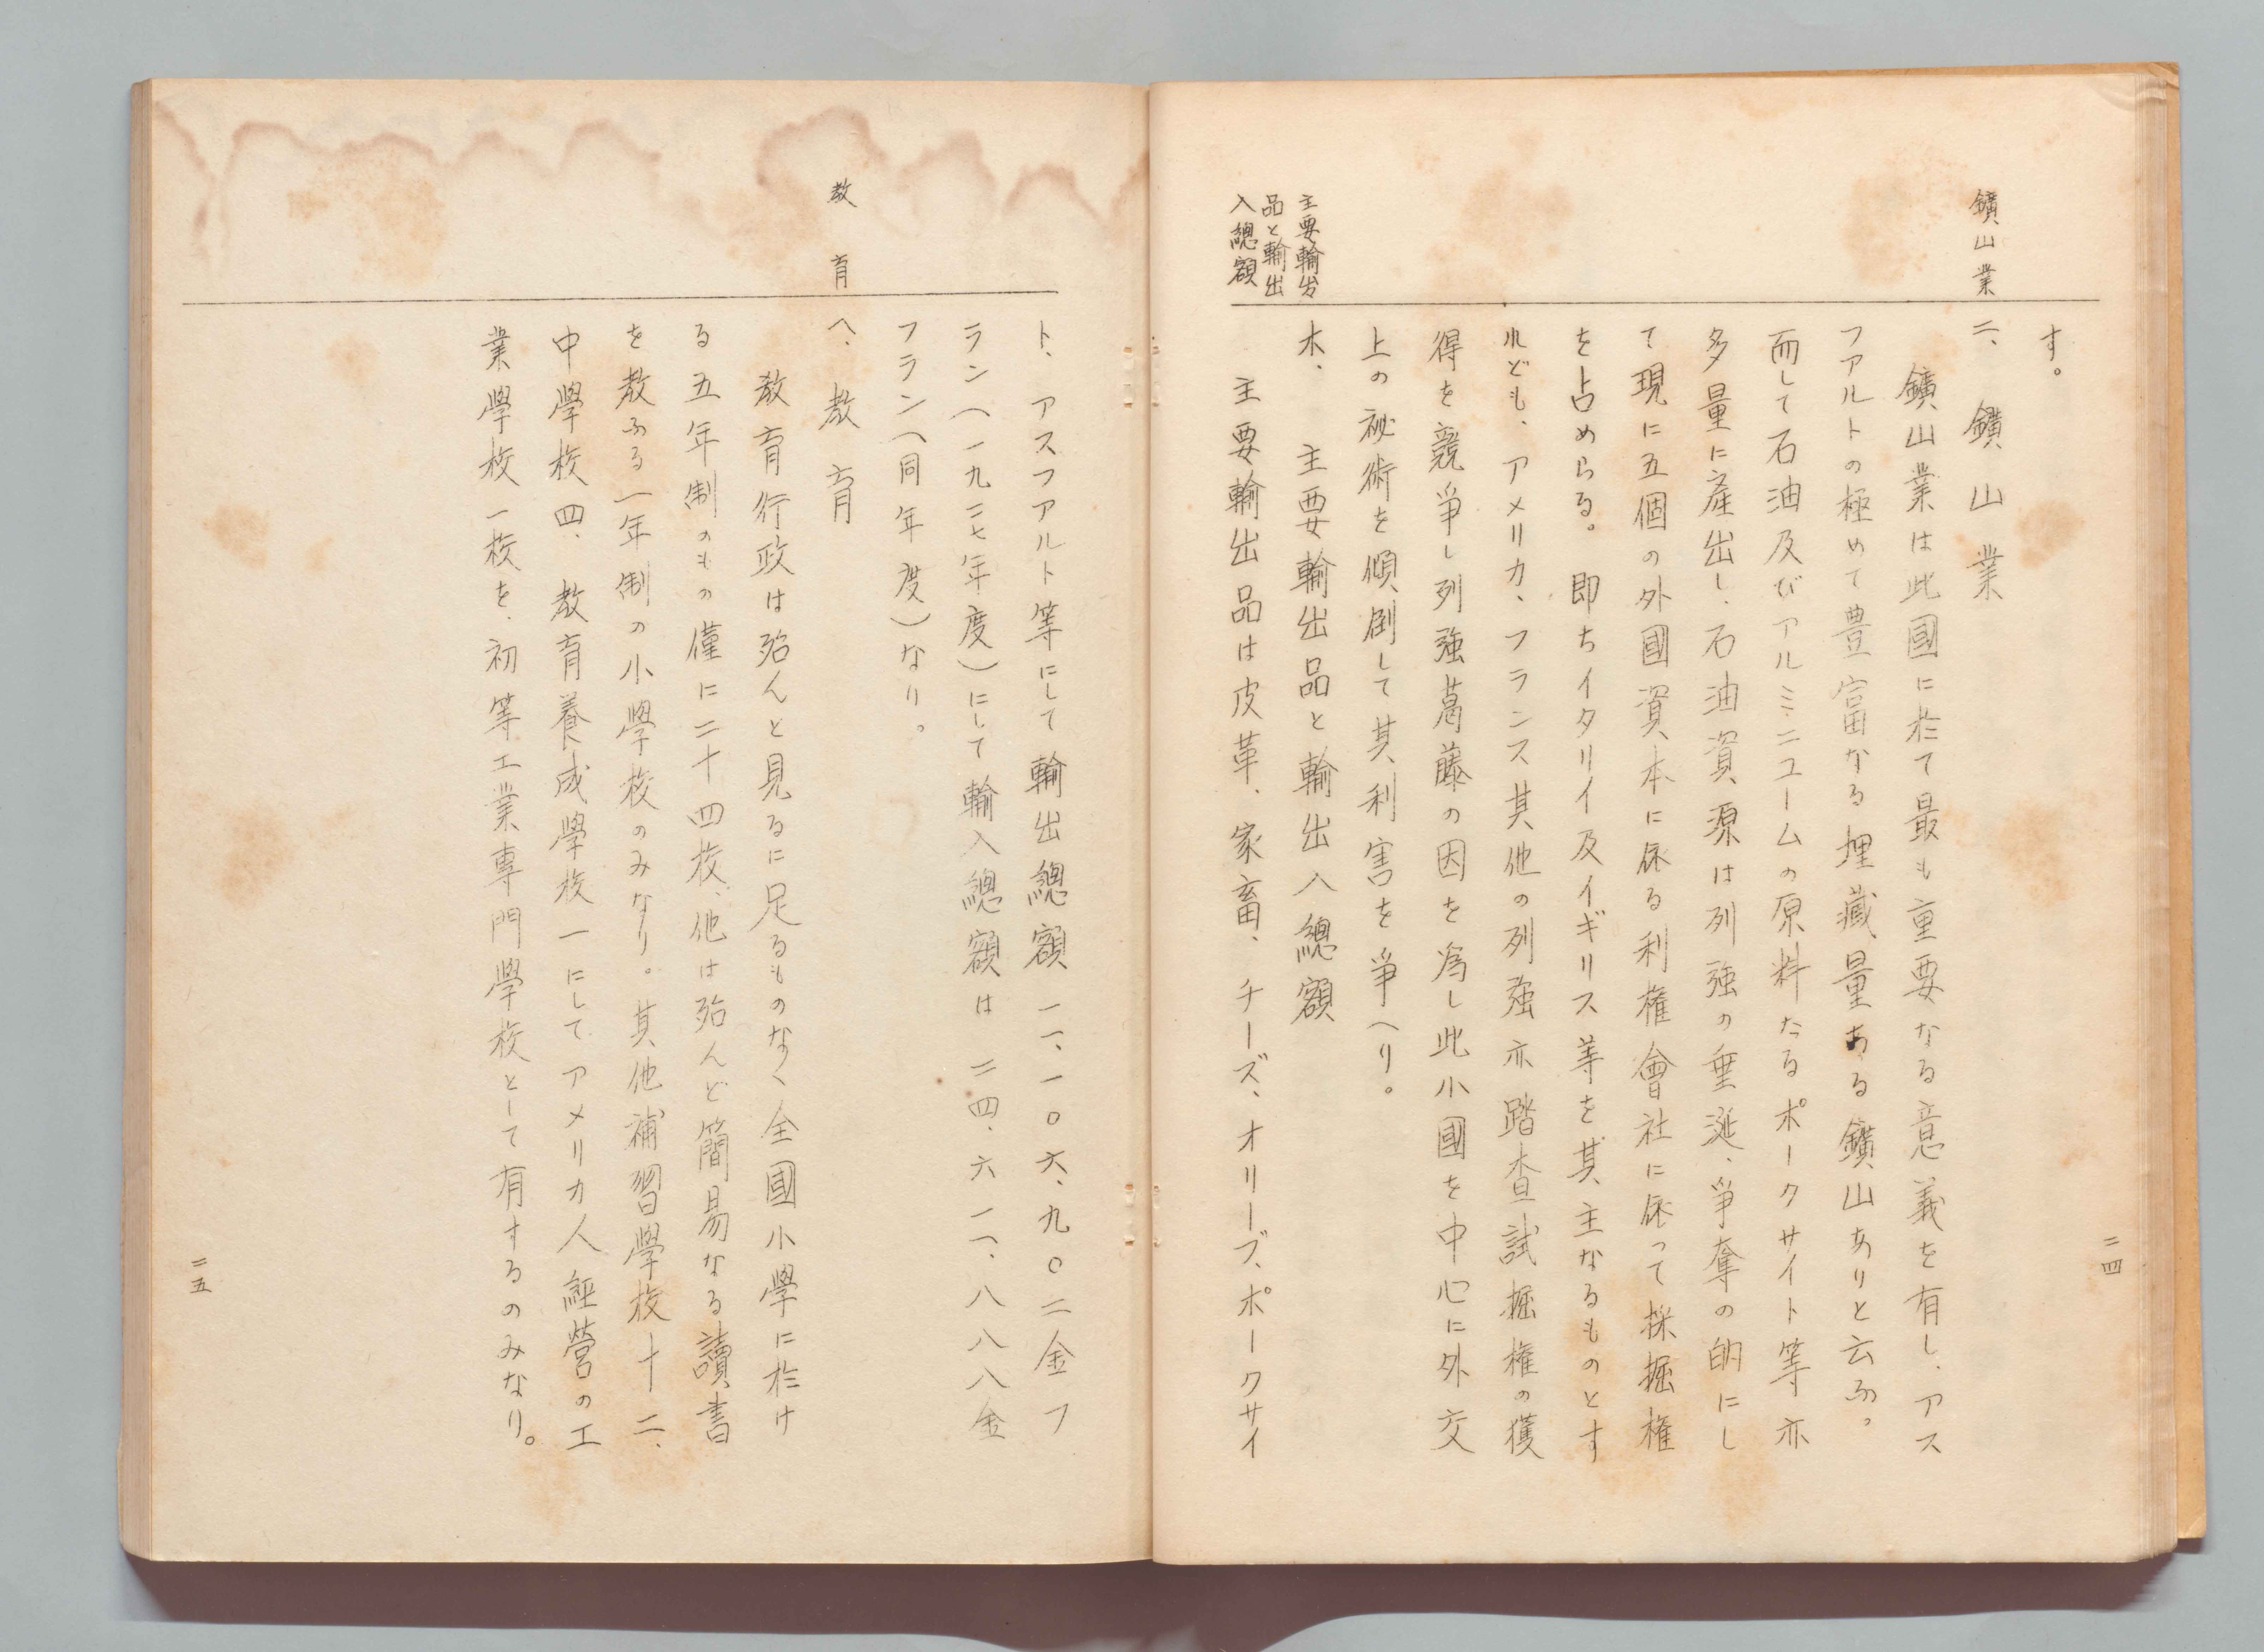 二四
鑛山業
す。
ニ、鑛山業
鑛山業は此國に於て最も重要なる意義を有し、アス
ファルトの極めて豊富なる埋藏量ある鑛山ありと云ふ。
而して石油及びアルミニユームの原料たるボークサイト等亦
多量に産出し、石油資源は列強の垂涎、爭奪の的にし
て現に五個の外國資本に依る利權會社に依って採掘權
を占めらる。即ちイタリイ及イギリス等を其主なるものとす
れども、アメリカ、フランス其他の列強亦踏査試掘權の獲
得を競爭し列強葛藤の因を爲し此小國を中心に外交
上の祕術を傾倒して其利害を爭へり。
主要輸出
品と輸出
入總額
ホ、主要輸出品と輸出入總額
主要輸出品は皮革、家畜、チーズ、オリーブ、ボークサイ
ト、アスファルト等にして輸出總額一一、一〇六、九〇二金フ
ラン(一九二七年度)にして輸入總額は二四、六一一、八八八金
フラン(同年度)なり。
教育
ヘ、教育
教育行政は殆んと見るに足るものなく全國小學に於け
る五年制のもの僅に二十四校、他は殆んど簡易なる讀書
を教ふる一年制の小學校のみなり。其他補習學校十二、
中學校四、教育養成學校一にしてアメリカ人經營の工
業學校一校を、初等工業専門學校として有するのみなり。
二五